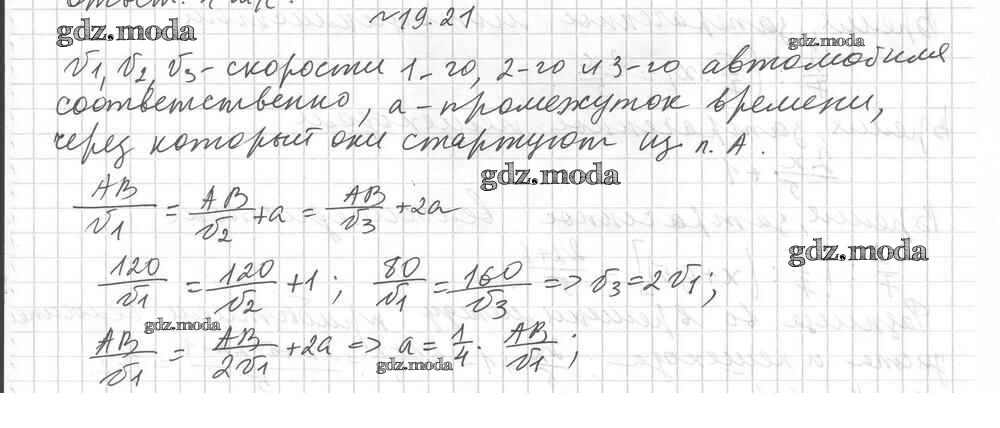 №19.21
gdz.moda
gdz.moda
v1, v2, v3 - скорости 1-го, 2-го и 3-го автомобиля
соответственно, а - промежуток времени,
через который они стартуют из п. А.
gdz.moda
AB/v1 = AB/v2 + a = AB/v3 + 2a
gdz.moda
120/v1 = 120/v2 + 1; 80/v1 = 160/v3 => v3 = 2v1;
gdz.moda
AB/v1 = AB/2v1 + 2a => a = 1/4 · AB/v1;
gdz.moda